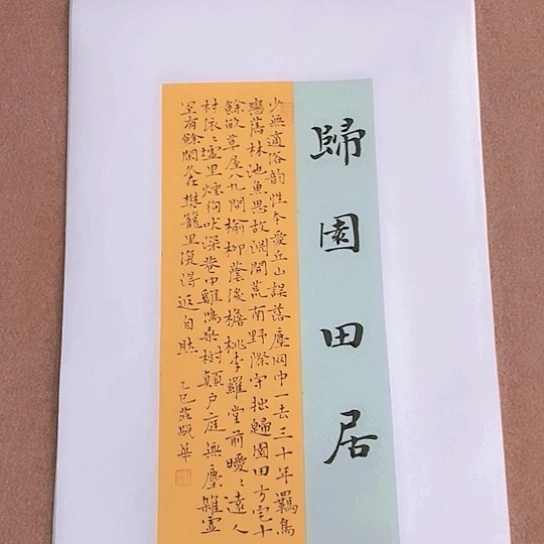 歸園田居
少無適俗韵性本愛丘山誤落塵网中一去三十年羈鳥
戀舊林池魚思故淵開荒南野際守拙歸園田方宅十
餘畝草屋八九間榆柳蔭後檐桃李羅堂前曖〻遠人
村依〻墟里煙狗吠深巷中雞鳴桑樹顛戶庭無塵雜虛
室有餘閑久在樊籠里復得返自然 乙巳 華